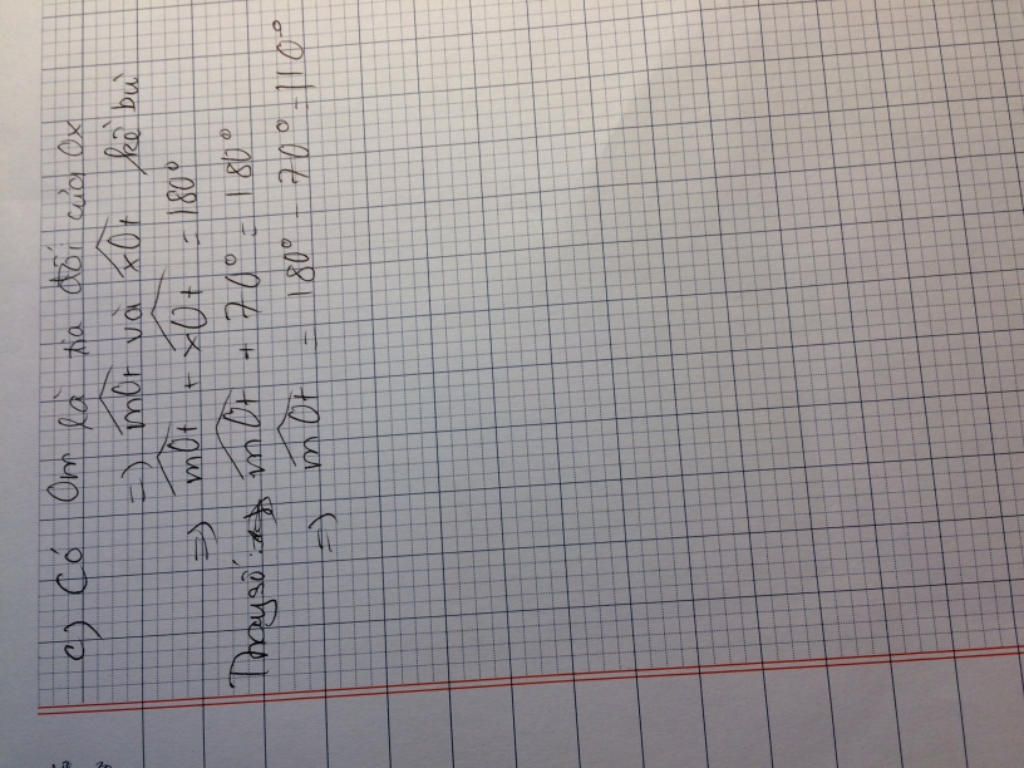 c) Có Om là tia đối của Ox
=) m̂Ot và x̂Ot kề bù
=) m̂Ot + x̂Ot = 180°
Thay số: m̂Ot + 70° = 180°
=) m̂Ot = 180° - 70° = 110°